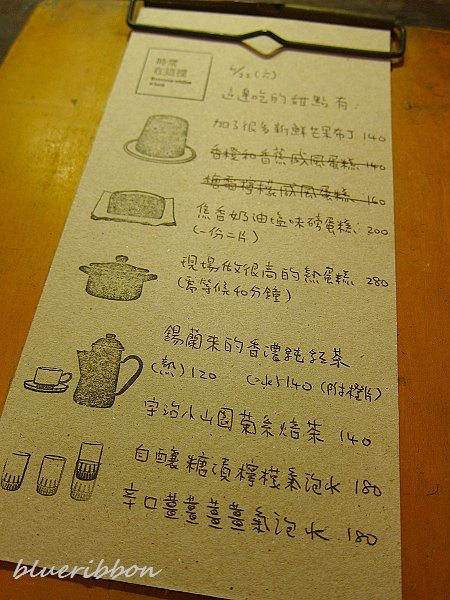 時常
在這裡
6/22(六)
這邊吃的甜點有:
加了很多新鮮芒果布丁 140
香橙和香蕉戚風蛋糕 140
糖霜檸檬戚風蛋糕 160
焦香奶油塩味磅蛋糕 200
(一份二片)
現場做很高的熱蛋糕 280
(需等候40分鐘)
錫蘭來的香濃純紅茶:
(熱)120 (冰)140 (附橙片)
宇治小山園菊系焙茶 140
自釀糖漬檸檬氣泡水 180
辛口薑薑薑薑氣泡水 180
blueribbon